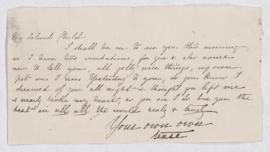 My beloved Philip.
I shall be in to see you this morning
as I have two invitations, for you & she some
new to tell you, all jolly nice things, my own
Pet was I near Yesterday to you, do you know I
dreamed of you all night & thought you left me
& nearly broke my heart, as you see I do love you the
best in all all the world really & truly
Your own own